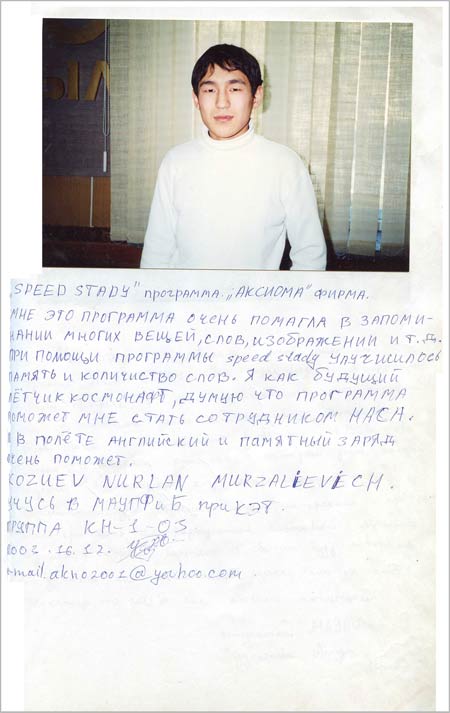 „SPEED STADY" программа. „АКСИОМА" ФИРМА.
МНЕ ЭТО ПРОГРАММА ОЧЕНЬ ПОМАГЛА В ЗАПОМИ-
НАНИИ МНОГИХ ВЕЩЕЙ, СЛОВ, ИЗОБРАЖЕНИИ И Т.Д.
ПРИ ПОМОЩЬИ ПРОГРАММЫ speed stady УЛУЧШИЛОСЬ
ПАМЯТЬ И КОЛИЧИСТВО СЛОВ. Я КАК БУДУЩИЙ
ЛЁТЧИК КОСМОНАФТ, ДУМУЮ ЧТО ПРОГРАММА
ПОМОЖЕТ МНЕ СТАТЬ СОТРУДНИКОМ НАСА.
В ПОЛЁТЕ АНГЛИЙСКИЙ И ПАМЯТНЫЙ ЗАРЯД
ОЧЕНЬ ПОМОЖЕТ.
KOZUEV NURLAN MURZALIEVECH.
УЧУСЬ В МАУПФиБ при КЭТ.
ГРУППА КН-1-03
16.12.
e-mail.akno2001@yahoo.com.